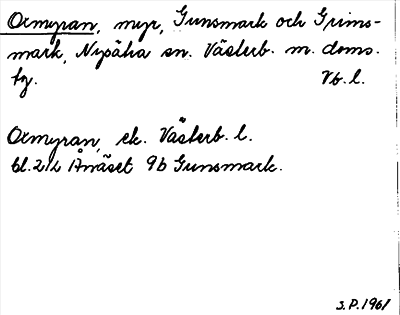 Oxmyran, myr, Gunsmark och Grims-
mark, Nysätra sn. Västerb. m. doms.
by. Vb. l.
Oxmyran, ek. Västerb. l.
bl. 212 Ånäset 9b Gunsmark.
S.P. 1961